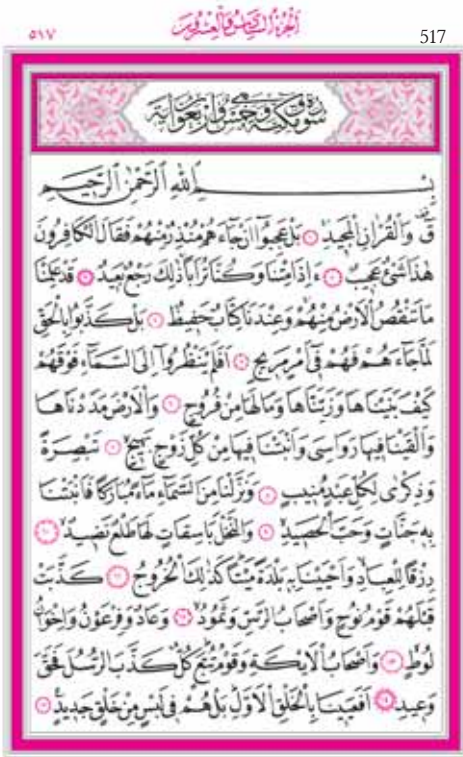 ٥١٧ الجزء السادس والعشرون 517
سورة ق مكية وهي خمس واربعون اية
بِسْمِ اللهِ الرَّحْمٰنِ الرَّحِيمِ
قٓ وَالْقُرْاٰنِ الْمَجِيدِ ١ بَلْ عَجِبُٓوا اَنْ جَٓاءَهُمْ مُنْذِرٌ مِنْهُمْ فَقَالَ الْكَافِرُونَ
هٰذَا شَيْءٌ عَجِيبٌ ٢ ءَاِذَا مِتْنَا وَكُنَّا تُرَابًا ذٰلِكَ رَجْعٌ بَعِيدٌ ٣ قَدْ عَلِمْنَا
مَا تَنْقُصُ الْاَرْضُ مِنْهُمْ وَعِنْدَنَا كِتَابٌ حَفِيظٌ ٤ بَلْ كَذَّبُوا بِالْحَقِّ
لَمَّا جَٓاءَهُمْ فَهُمْ فِٓي اَمْرٍ مَرِيجٍ ٥ اَفَلَمْ يَنْظُرُٓوا اِلَى السَّمَٓاءِ فَوْقَهُمْ
كَيْفَ بَنَيْنَاهَا وَزَيَّنَّاهَا وَمَا لَهَا مِنْ فُرُوجٍ ٦ وَالْاَرْضَ مَدَدْنَاهَا
وَاَلْقَيْنَا فِيهَا رَوَاسِيَ وَاَنْبَتْنَا فِيهَا مِنْ كُلِّ زَوْجٍ بَهِيجٍ ٧ تَبْصِرَةً
وَذِكْرٰى لِكُلِّ عَبْدٍ مُنِيبٍ ٨ وَنَزَّلْنَا مِنَ السَّمَٓاءِ مَٓاءً مُبَارَكًا فَاَنْبَتْنَا
بِهٖ جَنَّاتٍ وَحَبَّ الْحَصِيدِ ٩ وَالنَّخْلَ بَاسِقَاتٍ لَهَا طَلْعٌ نَضِيدٌ ١٠
رِزْقًا لِلْعِبَادِ وَاَحْيَيْنَا بِهٖ بَلْدَةً مَيْتًا كَذٰلِكَ الْخُرُوجُ ١١ كَذَّبَتْ
قَبْلَهُمْ قَوْمُ نُوحٍ وَاَصْحَابُ الرَّسِّ وَثَمُودُ ١٢ وَعَادٌ وَفِرْعَوْنُ وَاِخْوَانُ
لُوطٍ ١٣ وَاَصْحَابُ الْاَيْكَةِ وَقَوْمُ تُبَّعٍ كُلٌّ كَذَّبَ الرُّسُلَ فَحَقَّ
وَعِيدِ ١٤ اَفَعَيِينَا بِالْخَلْقِ الْاَوَّلِ بَلْ هُمْ فِي لَبْسٍ مِنْ خَلْقٍ جَدِيدٍ ١٥